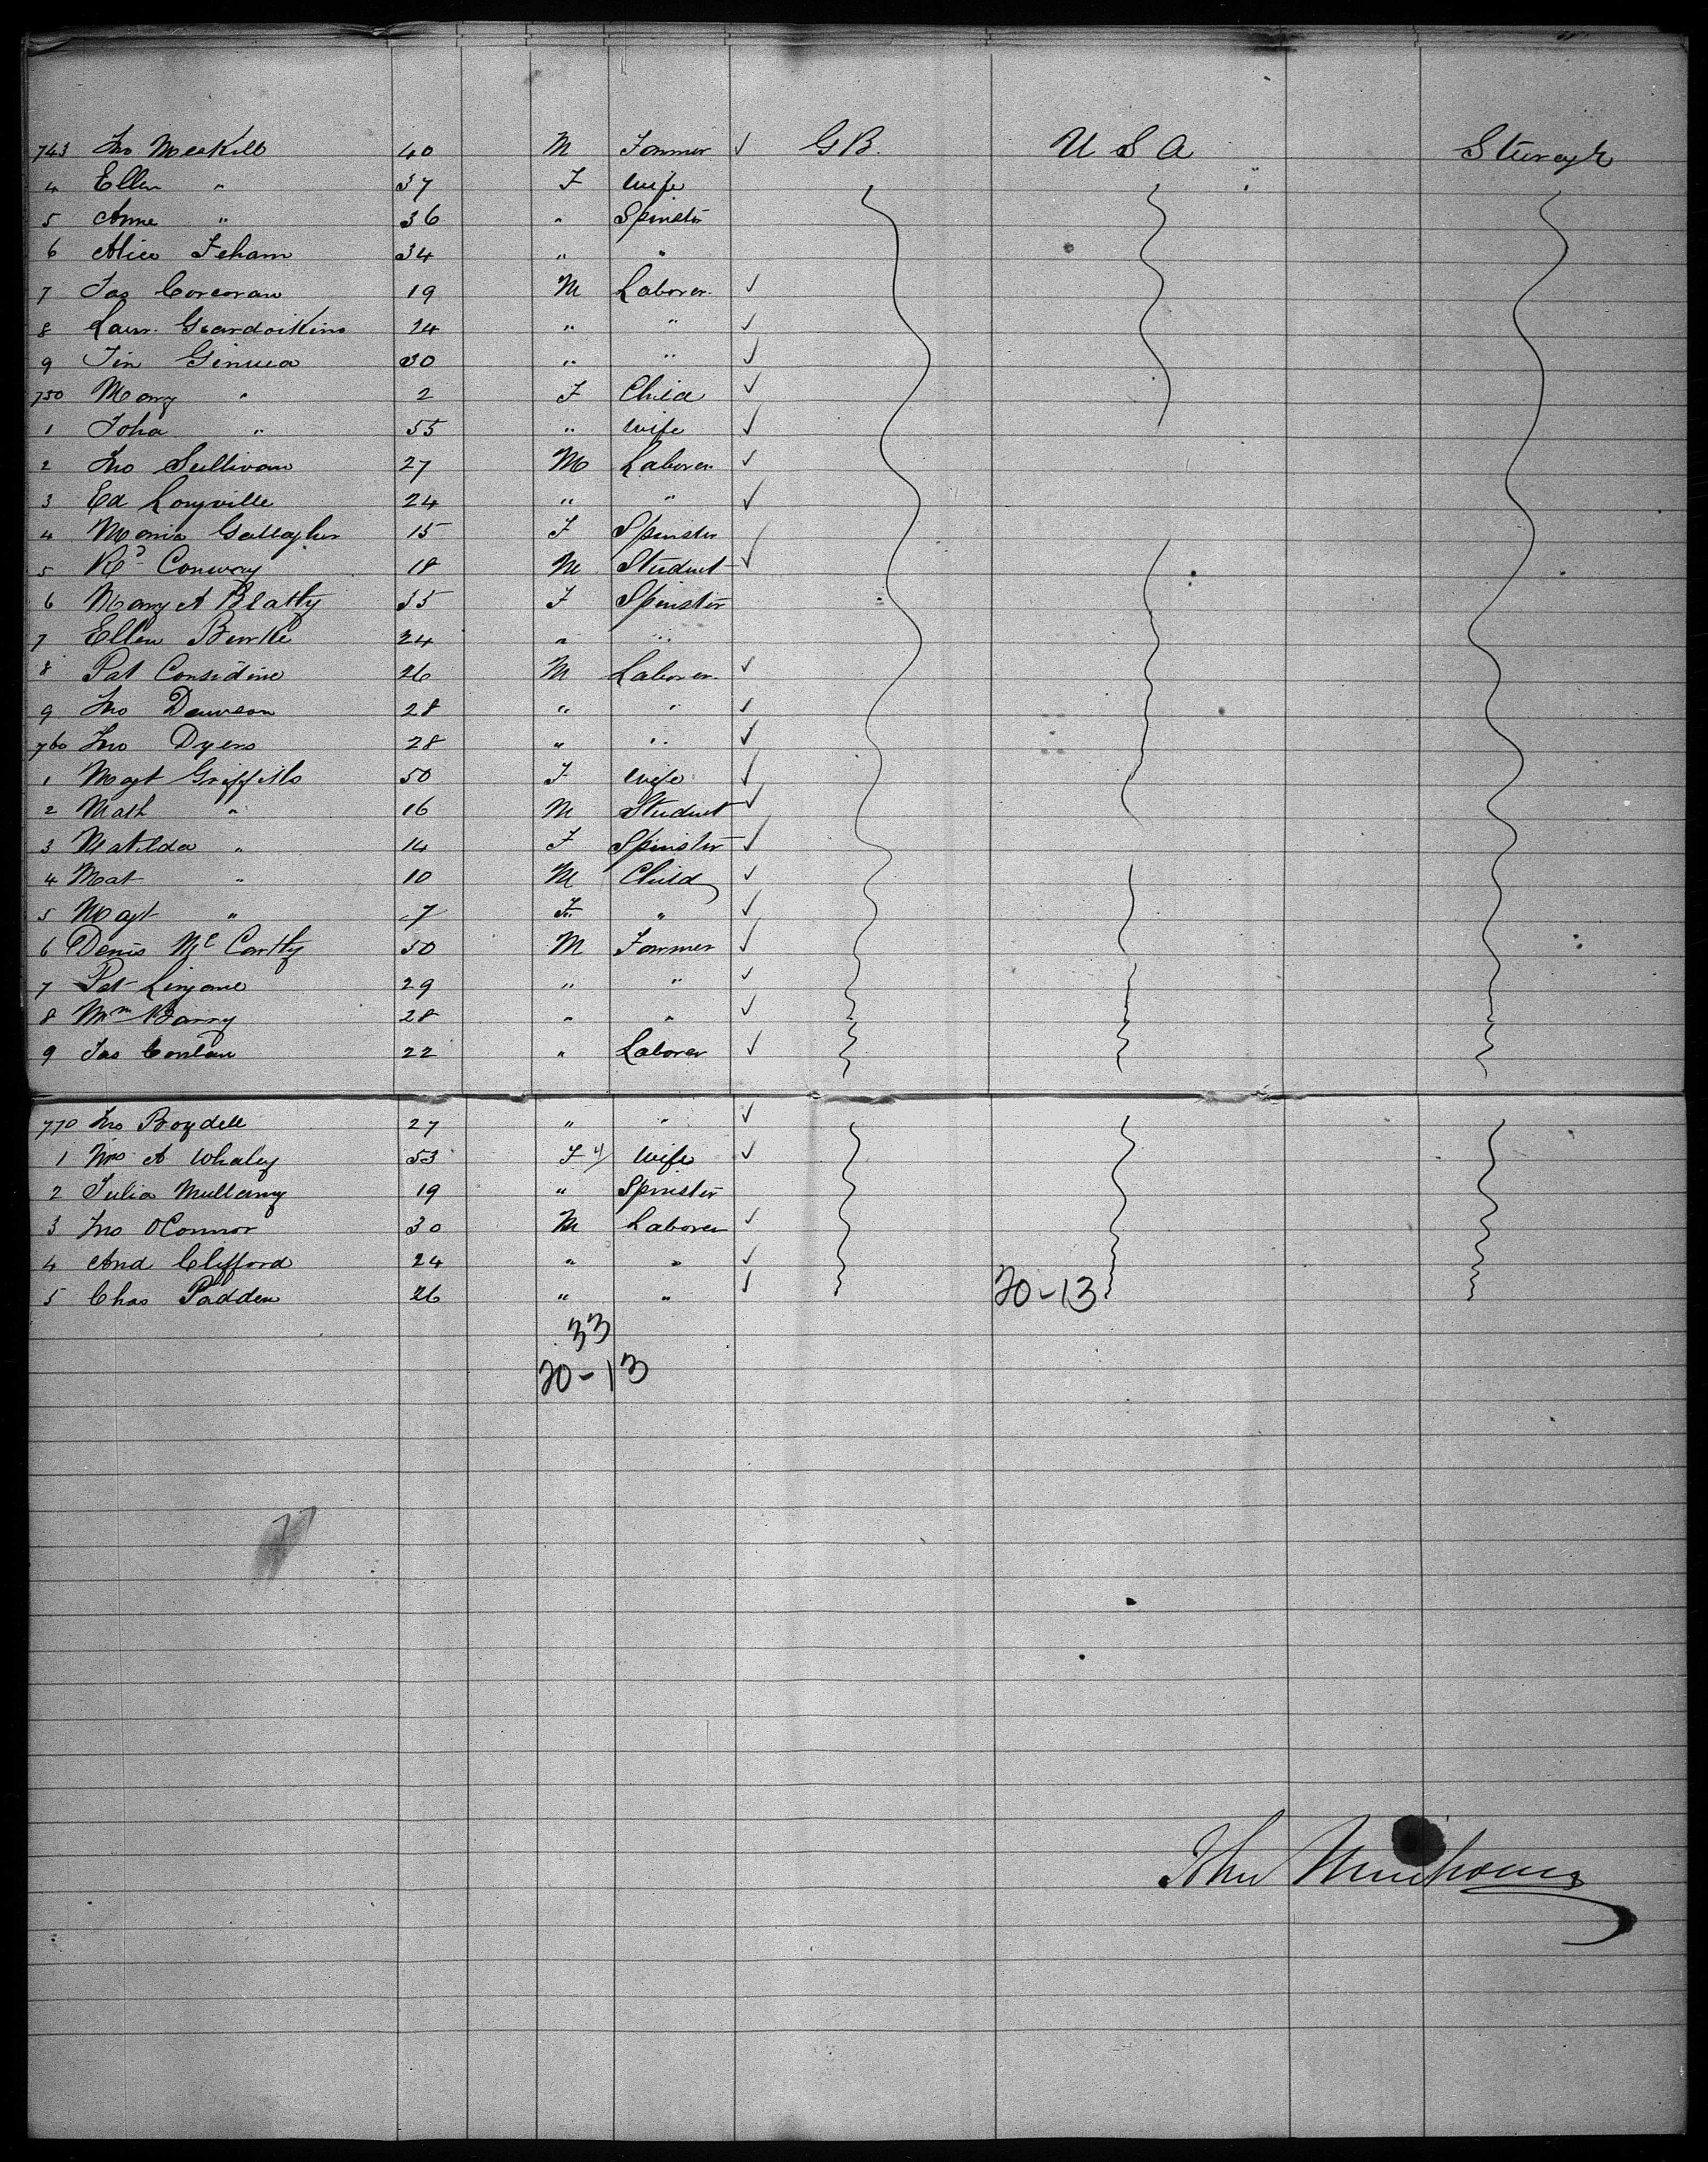 743 Jno Meskill 40 M Farmer ✓ GB. U S A Steerage
4 Ellen " 37 F Wife
5 Anne " 36 " Spinster
6 Alice 34 " "
7 Jas Corcoran 19 M Laborer ✓
8 Laur. 24 " " ✓
9 30 " " ✓
750 Mary " 2 F Child ✓
1 Joha " 55 " Wife ✓
2 Jno Sullivan 27 M Laborer ✓
3 Ed Longville 24 " " ✓
4 Maria Gallagher 15 F Spinster
5 Rd Conway 18 M Student ✓
6 Mary A Beatty 35 F Spinster
7 Ellen Burke 24 " "
8 Pat Considine 26 M Laborer ✓
9 Jno Dawson 28 " " ✓
760 Jno Dyers 28 " " ✓
1 Magt Griffiths 50 F Wife ✓
2 Math " 16 M Student ✓
3 Matilda " 14 F Spinster ✓
4 Mat " 10 M Child ✓
5 Magt " 7 F " ✓
6 Denis McCarthy 50 M Farmer ✓
7 Pat Linane 29 " " ✓
8 Wm Barry 28 " " ✓
9 Jas Conlan 22 " Laborer ✓
770 Jno Boydell 27 " " ✓
1 Mrs A Whaley 53 F Wife ✓
2 Julia Mullany 19 " Spinster
3 Jno OConnor 30 M Laborer ✓
4 And Clifford 24 " " ✓
5 Chas Padden 26 " " ✓ 20-13
33
20-13
77
John